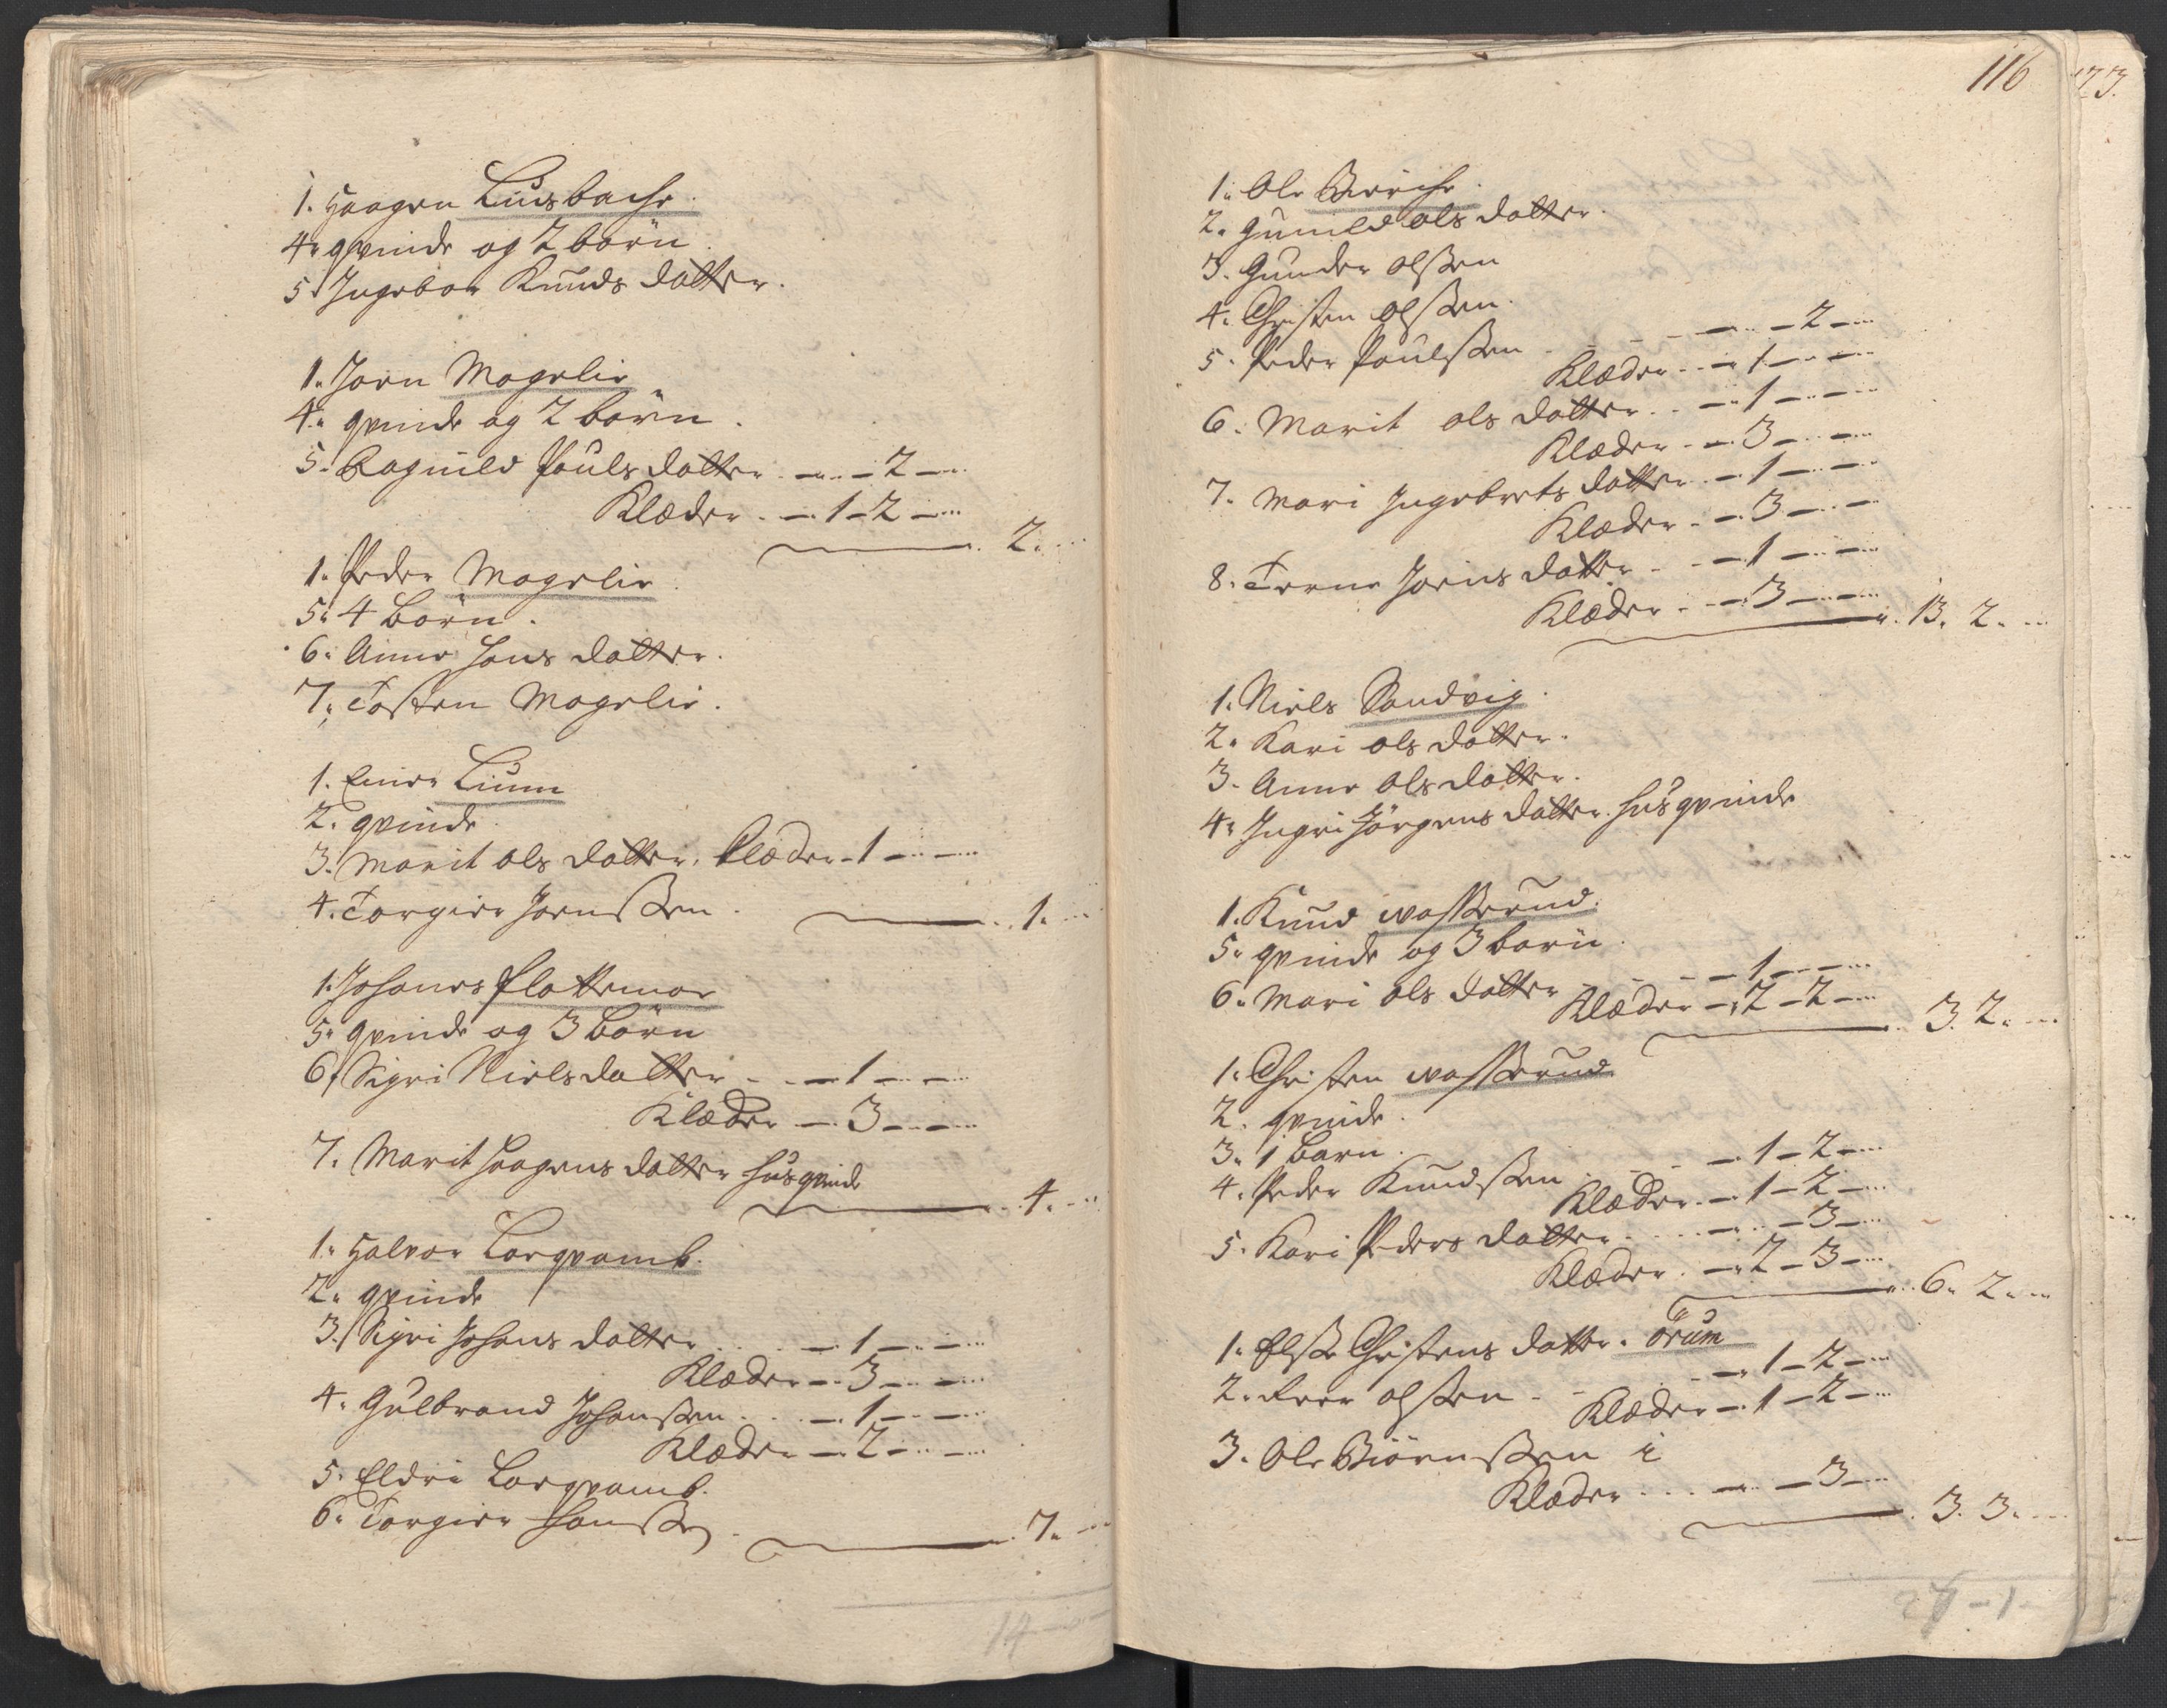 1. Haagen Lusbache.
4. qvinde og 2 börn.
5. Ingebor Knuds datter.
1. Joen Mogelie
4. qvinde og 2 börn.
5. Ragnild Pouls datter. – – 2 –
Klæder. – 1 – 2 –
2.
1. Peder Mogelie.
5. 4 Börn.
6. Anne Hans datter.
7. Tosten Mogelie.
1. Einer Lium
2. qvinde
3. Marit ols datter. Klæder – 1 – –
4. Torgier Joenssen.
1.
1. Johanes Plottemoe
5. qvinde og 3 Börn
6. Sigri Nielsdatter – 1 – –
Klæder – 3 – –
7. Marit Haagens datter husqvinde
4.
1. Halvor Lorqvamb.
2. qvinde
3. Sigri Johans datter – 1 – –
Klæder – 3 – –
4. Gulbrand Johanssen – 1 – –
Klæder – 2 – –
5. Eldri Lorqvamb.
6. Torgier Hanssen
7.
14 –
116
173.
1. Ole
2. Gunild ols datter.
3. Gunder olssen
4. Christen olssen.
5. Peder Poulssen – – 2 –
Klæder – 1 – –
6. Marit ols datter – 1 – –
Klæder – 3 – –
7. Mari Ingebrets datter – 1 – –
Klæder – 3 – –
8. Joens datter – 1 – –
Klæder – 3 – –
13. 2.
1. Niels Sandvig.
2. Kari ols datter.
3. Anne ols datter.
4. Ingri Jörgens datter. husqvinde
1. Knud wasserud.
5. qvinde og 3 börn.
6. Mari ols datter – 1 – –
Klæder – 2 – 2 –
3. 2.
1. Christen wasserud
2. qvinde.
3. 1 Barn.
4. Peder Knudssen – 1 – 2 –
Klæder – 1 – 2 –
5. Kari Peders datter – – 3 –
Klæder – 2 – 3 –
6. 2.
1. Else Christens datter. Örum
2. Iver olssen – 1 – 2 –
Klæder – 1 – 2 –
3. Ole Biörnssen
Klæder – – 3 –
3. 3.
27 – 1 –